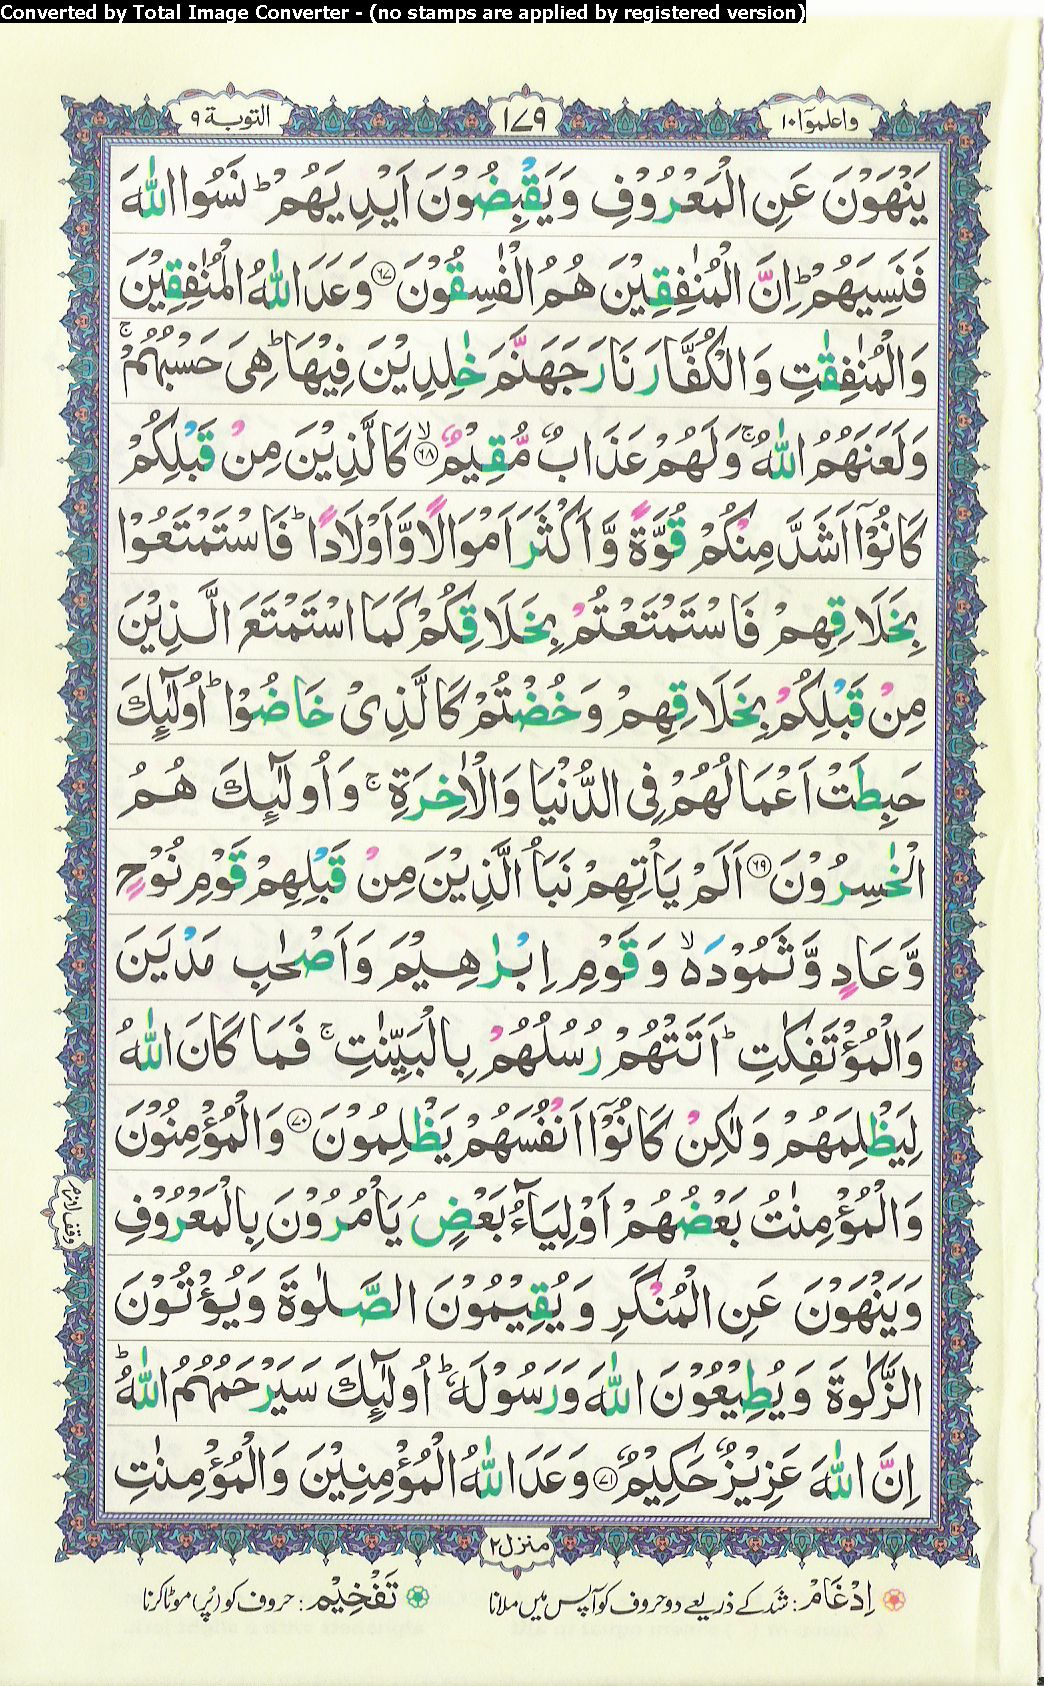 Converted by Total Image Converter - (no stamps are applied by registered version)
واعلموٓا ١٠
١٧٩
التوبة ٩
يَنْهَوْنَ عَنِ الْمَعْرُوْفِ وَيَقْبِضُوْنَ اَيْدِيَهُمْ ؕ نَسُوا اللّٰهَ
فَنَسِيَهُمْ ؕ اِنَّ الْمُنٰفِقِيْنَ هُمُ الْفٰسِقُوْنَ ﴿٦٧﴾ وَعَدَ اللّٰهُ الْمُنٰفِقِيْنَ
وَالْمُنٰفِقٰتِ وَالْكُفَّارَ نَارَ جَهَنَّمَ خٰلِدِيْنَ فِيْهَا ؕ هِىَ حَسْبُهُمْ ۚ
وَلَعَنَهُمُ اللّٰهُ ۚ وَلَهُمْ عَذَابٌ مُّقِيْمٌ ﴿٦٨﴾ ۙ كَالَّذِيْنَ مِنْ قَبْلِكُمْ
كَانُوْۤا اَشَدَّ مِنْكُمْ قُوَّةً وَّاَكْثَرَ اَمْوَالًا وَّاَوْلَادًا ؕ فَاسْتَمْتَعُوْا
بِخَلَاقِهِمْ فَاسْتَمْتَعْتُمْ بِخَلَاقِكُمْ كَمَا اسْتَمْتَعَ الَّذِيْنَ
مِنْ قَبْلِكُمْ بِخَلَاقِهِمْ وَخُضْتُمْ كَالَّذِىْ خَاضُوْا ؕ اُولٰٓئِكَ
حَبِطَتْ اَعْمَالُهُمْ فِى الدُّنْيَا وَالْاٰخِرَةِ ۚ وَاُولٰٓئِكَ هُمُ
الْخٰسِرُوْنَ ﴿٦٩﴾ اَلَمْ يَاْتِهِمْ نَبَاُ الَّذِيْنَ مِنْ قَبْلِهِمْ قَوْمِ نُوْحٍ
وَّعَادٍ وَّثَمُوْدَ ۙ وَقَوْمِ اِبْرٰهِيْمَ وَاَصْحٰبِ مَدْيَنَ
وَالْمُؤْتَفِكٰتِ ؕ اَتَتْهُمْ رُسُلُهُمْ بِالْبَيِّنٰتِ ۚ فَمَا كَانَ اللّٰهُ
لِيَظْلِمَهُمْ وَلٰكِنْ كَانُوْۤا اَنْفُسَهُمْ يَظْلِمُوْنَ ﴿٧٠﴾ وَالْمُؤْمِنُوْنَ
وَالْمُؤْمِنٰتُ بَعْضُهُمْ اَوْلِيَآءُ بَعْضٍ ۘ يَاْمُرُوْنَ بِالْمَعْرُوْفِ
وقف لازم
وَيَنْهَوْنَ عَنِ الْمُنْكَرِ وَيُقِيْمُوْنَ الصَّلٰوةَ وَيُؤْتُوْنَ
الزَّكٰوةَ وَيُطِيْعُوْنَ اللّٰهَ وَرَسُوْلَهٗ ؕ اُولٰٓئِكَ سَيَرْحَمُهُمُ اللّٰهُ ؕ
اِنَّ اللّٰهَ عَزِيْزٌ حَكِيْمٌ ﴿٧١﴾ وَعَدَ اللّٰهُ الْمُؤْمِنِيْنَ وَالْمُؤْمِنٰتِ
منزل ٢
اِدْغَام: شد کے ذریعے دو حروف کو آپس میں ملانا
تَفْخِيْم: حروف کو (پُر) موٹا کرنا